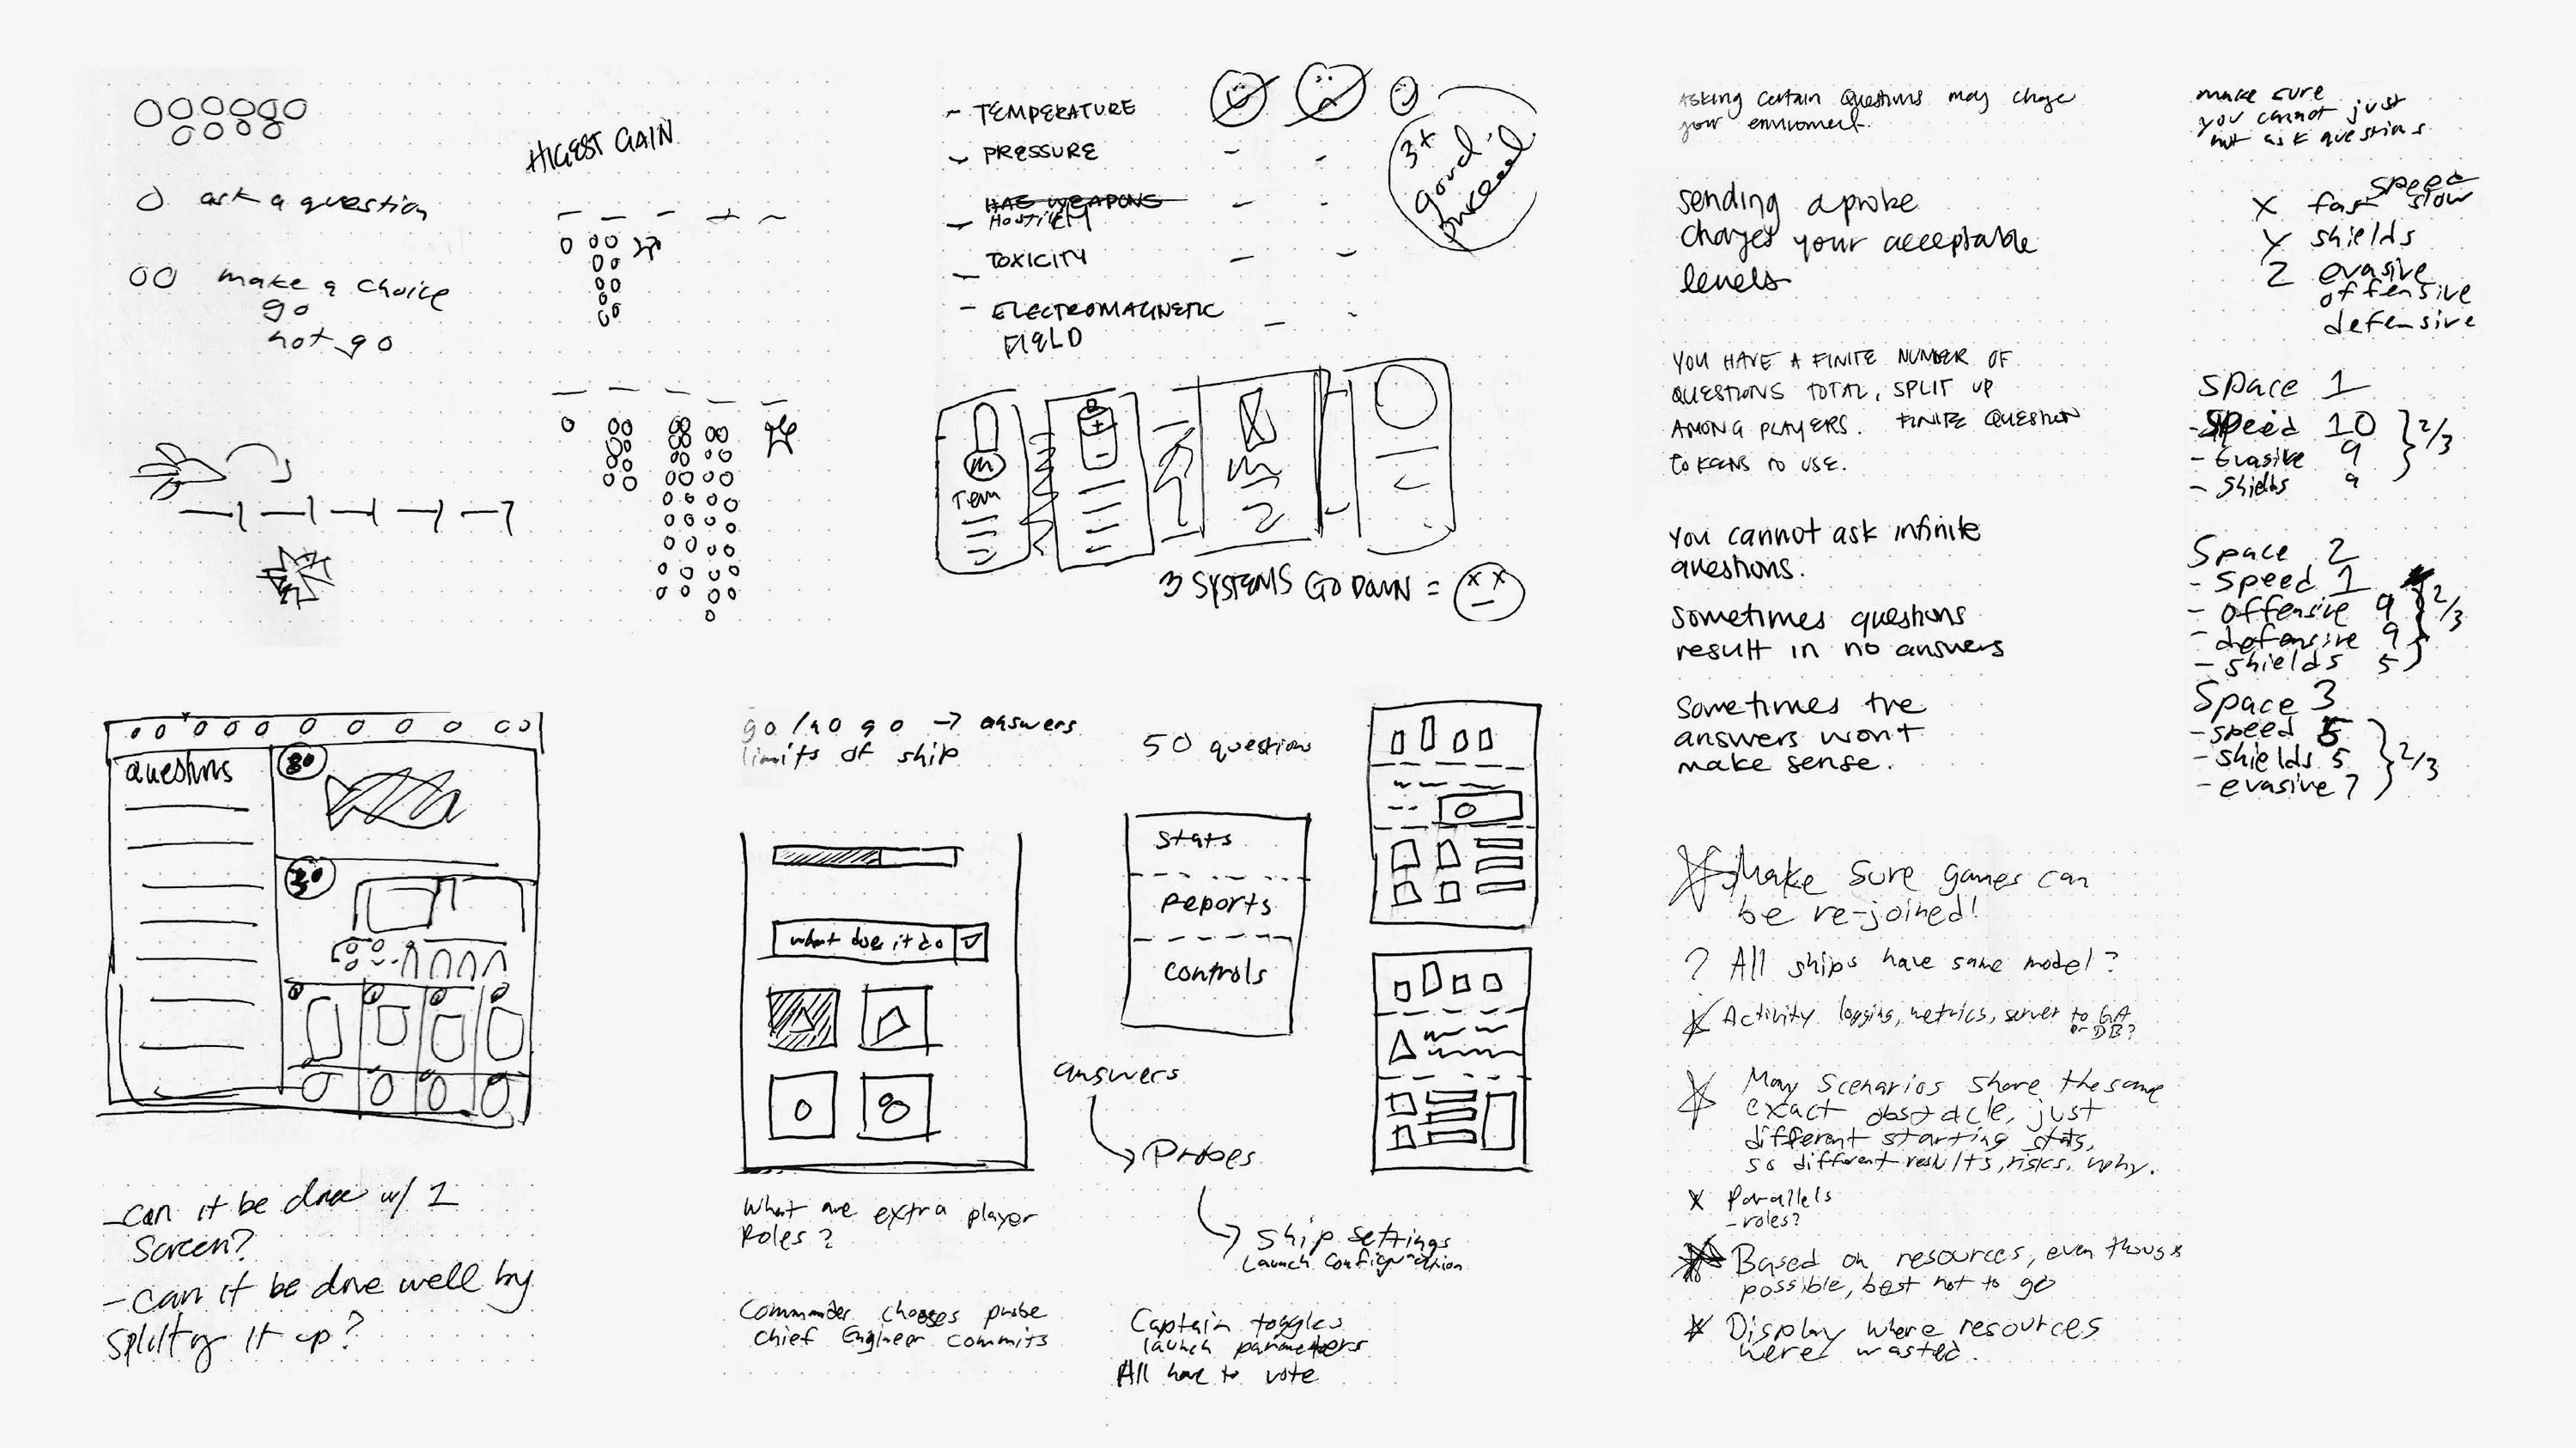 HIGEST GAIN
ask a question
make a choice
go
not go
- TEMPERATURE
- PRESSURE
HAS WEAPONS
- HOSTILITY
- TOXICITY
- ELECTROMAGNETIC
FIELD
3x
good,
proceed
Tem
3 SYSTEMS GO DOWN =
Asking certain Questions may chage
your enviroment.
sending a probe
changes your acceptable
levels
YOU HAVE A FINITE NUMBER OF
QUESTIONS TOTAL, SPLIT UP
AMONG PLAYERS. FINITE QUESTION
TOKENS TO USE.
You cannot ask infinite
questions.
Sometimes questions
result in no answers
Sometimes the
answers won't
make sense.
make sure
you cannot just
not ask questions
speed
X fast slow
Y shields
Z evasive
offensive
defensive
Space 1
- Speed 10
- Evasive 9
- Shields 9
2/3
Space 2
- Speed 1
- offensive 9
- defensive 9
- shields 5
2/3
Space 3
- speed 5
- shields 5
- evasive 7
2/3
questions
- Can it be done w/ 1
Screen?
- Can it be done well by
splitting it up?
go / no go → answers
limits of ship
50 question
what does it do
Stats
Reports
Controls
answers
Probes
Ship settings
Launch Configuration
What are extra player
Roles?
Commander chooses probe
Chief Engineer commits
Captain toggles
launch parameters
All have to vote
Make sure games can
be re-joined!
? All ships have same model?
Activity logging, metrics, server to GA
or DB?
May scenarios share the same
exact obstacle, just
different starting stats,
so different results, risks, why.
x Parallels
- roles?
Based on resources, even though
possible, best not to go
Display where resources
were wasted.